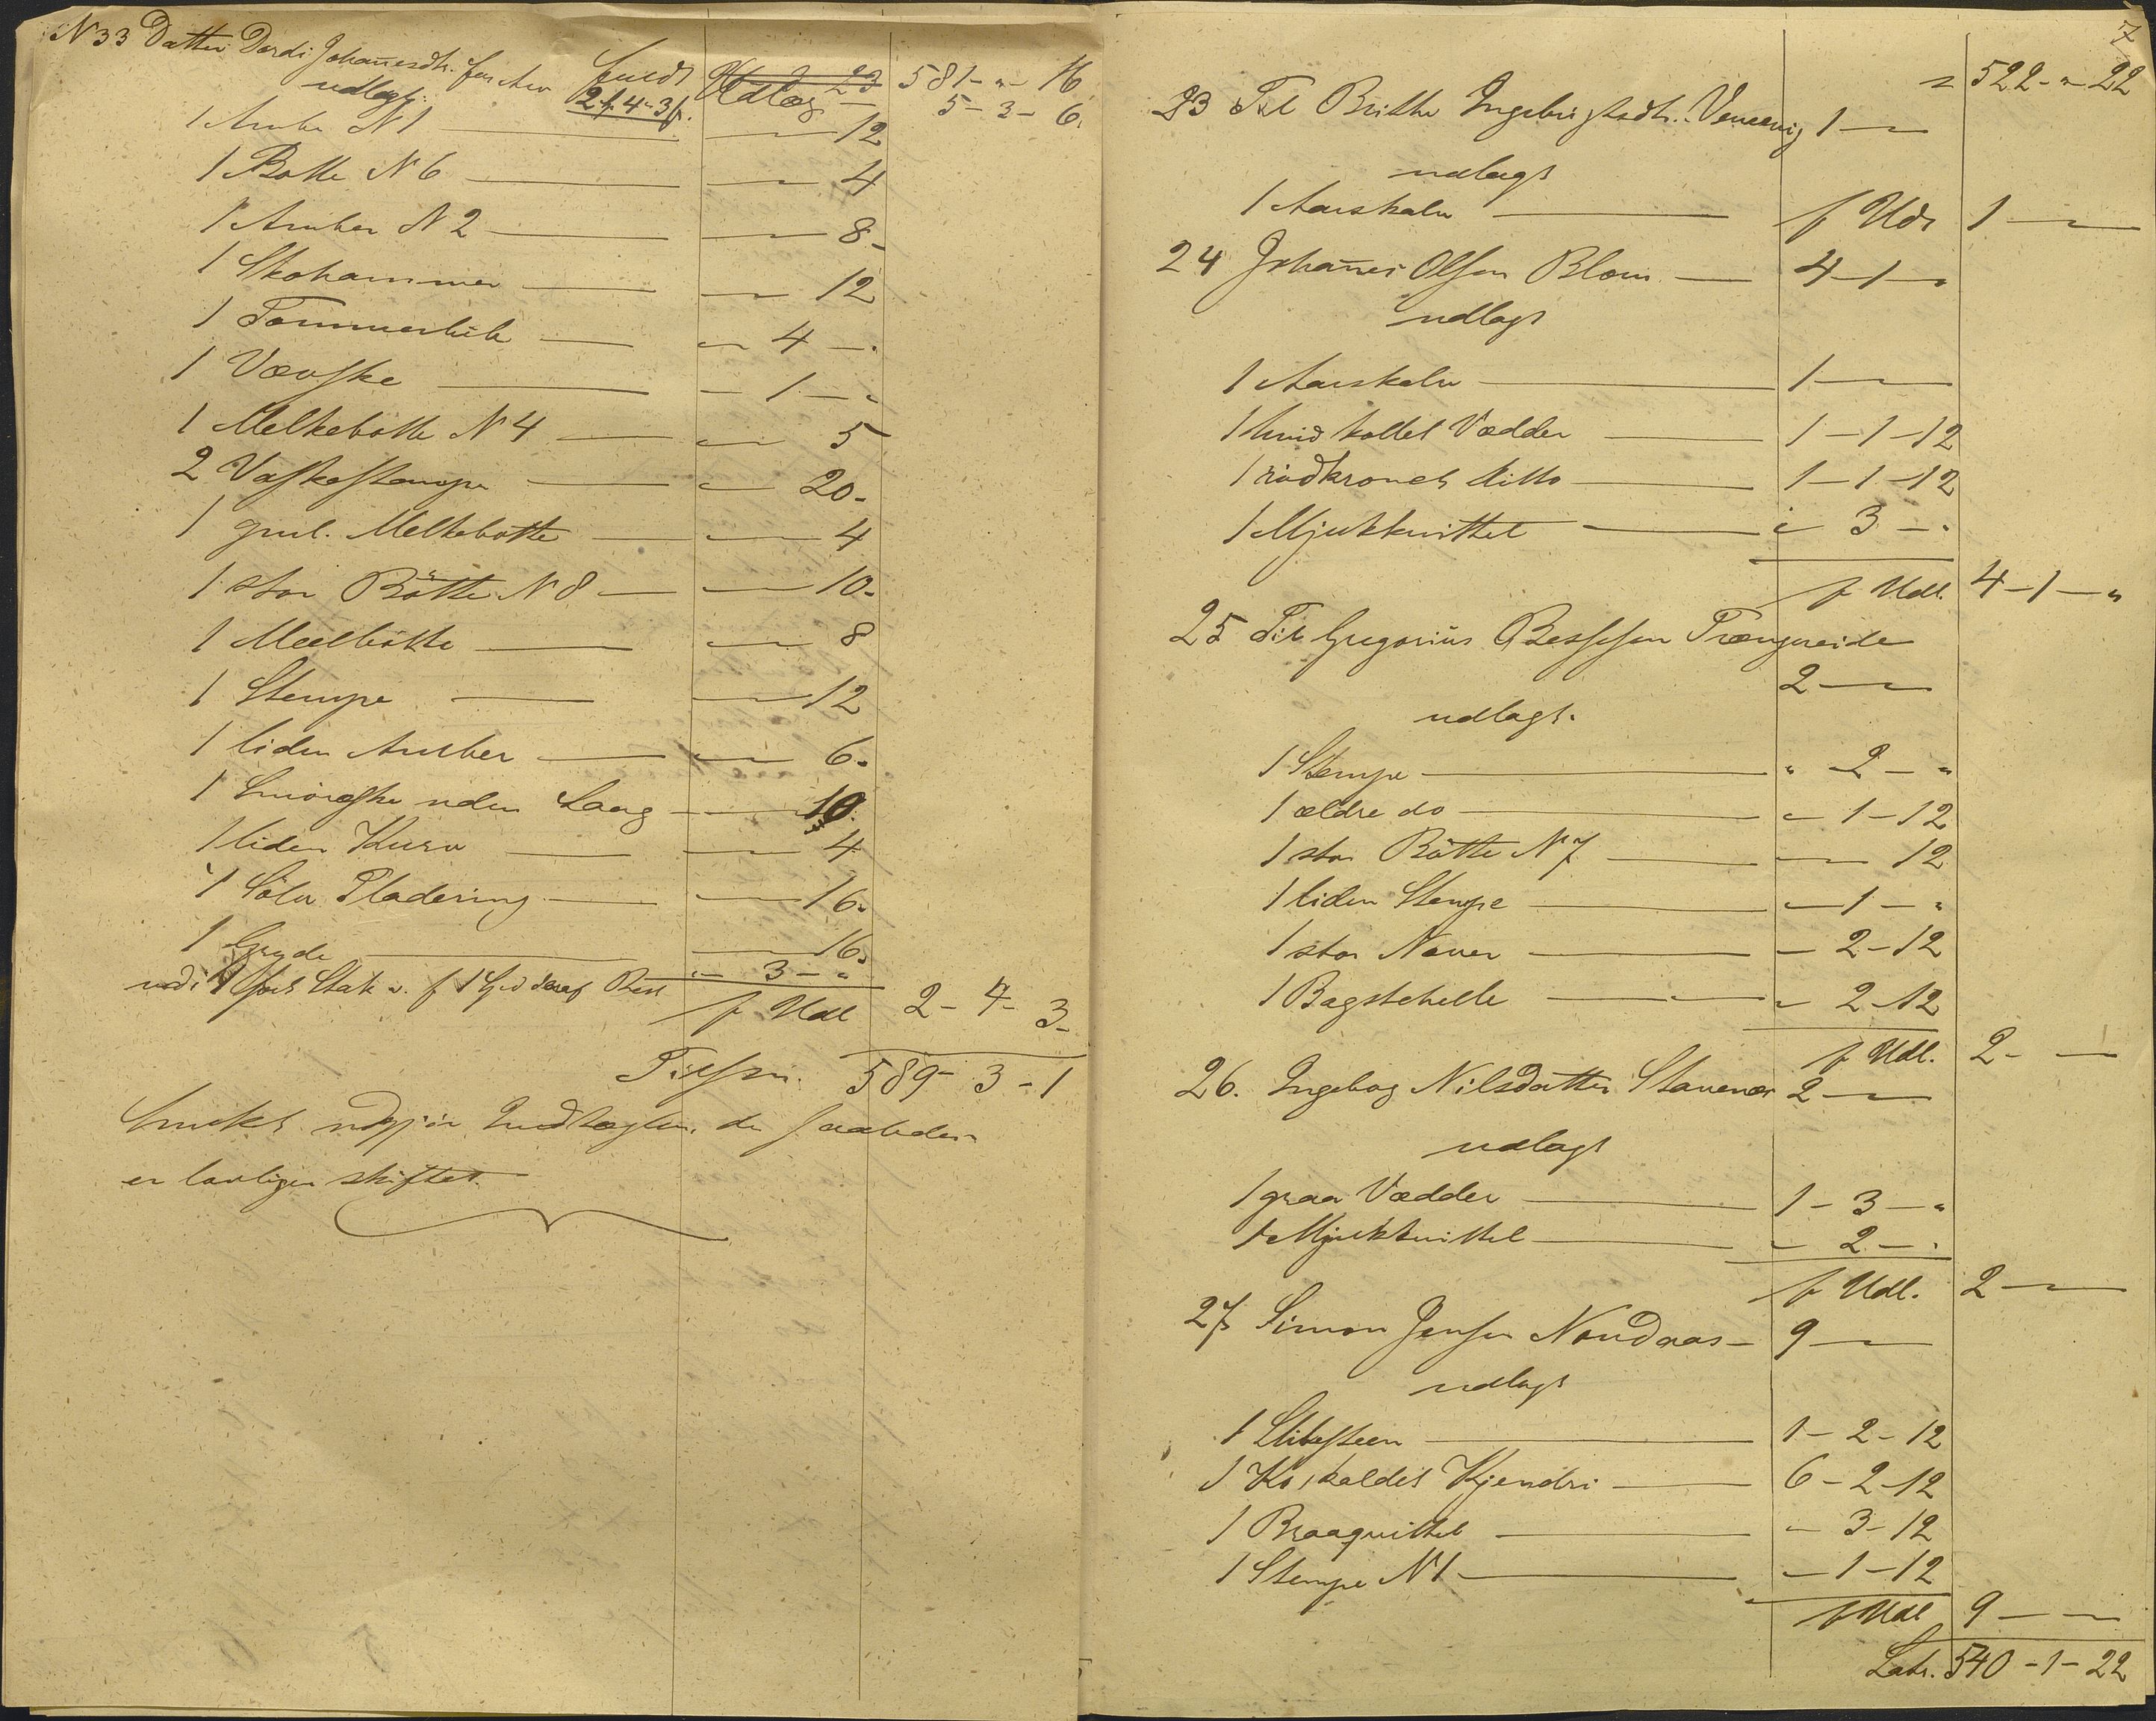 N 33 Datter Dordi Johannesdtr. for Arv fuldt 23 581 - " - 16
udlagt. 2 f. 4 - 3 f. Udlæg - 5 - 3 - 6.
1 Amber N 1 — 12
1 Botte N 6 — 4
1 Amber N 2 — 8 -
1 Skohammer — 12
1 Tømmerbile — " 4 — .
1 Vævske — - 1 — "
1 Melkebotte N 4 — 5
2 Vaskestampe — 20 -
1 gml. Melkebotte — 4
1 stor Bøtte N 8 — 10 -
1 Meelbøtte — 8
1 Stempe — 12
1 liden Amber — 6 -
1 Smöræske uden Laag — 10.
1 liden Kurv — 4
1 Sölv Pladering — 16 -
1 Gryde — 16.
udi 1 Stak v. f " - 3 - "
f Udl 2 - 4 - 3 -
Tilsm. 589 - 3 - 1
er lovligen skiftet.
7
522 - " - 22
23 Til Brithe Ingebrigtsdtr. 1 —
udlagt
1 Aarskalv — f Udl 1 —
24 Johannes Olsen Blom — 4 - 1 - "
udlagt
1 Aarskalv — 1 —
1 hvid kollet Vædder — 1 - 1 - 12
1 rödkronet ditto — 1 - 1 - 12
1 Mjukkvittel — " 3 - "
f Udl. 4 - 1 - "
25 Til Gregorius Trængereide
2 —
udlagt.
1 Stempe — " 2 - "
1 ældre do — " 1 - 12
1 stor Bøtte N 7 — 12
1 liden Stempe — - 1 - "
1 stor Naver — - 2 - 12
1 Bagstehelle — - 2 - 12
f Udl. 2 - —
26. Ingebog Nilsdatter Stavenes 2 —
udlagt
1 graa Vædder — 1 - 3 - "
1 Mjukkvittel — - 2 - .
f Udl. 2 —
27 Simon Jensen Nondaas - 9 —
udlagt
1 Slibesteen — 1 - 2 - 12
1 Ko, kaldet Kjendri — 6 - 2 - 12
1 Braaqvittel — - 3 - 12
1 Stempe N 1 — - 1 - 12
f Udl 9 — —
Latr. 540 - 1 - 22